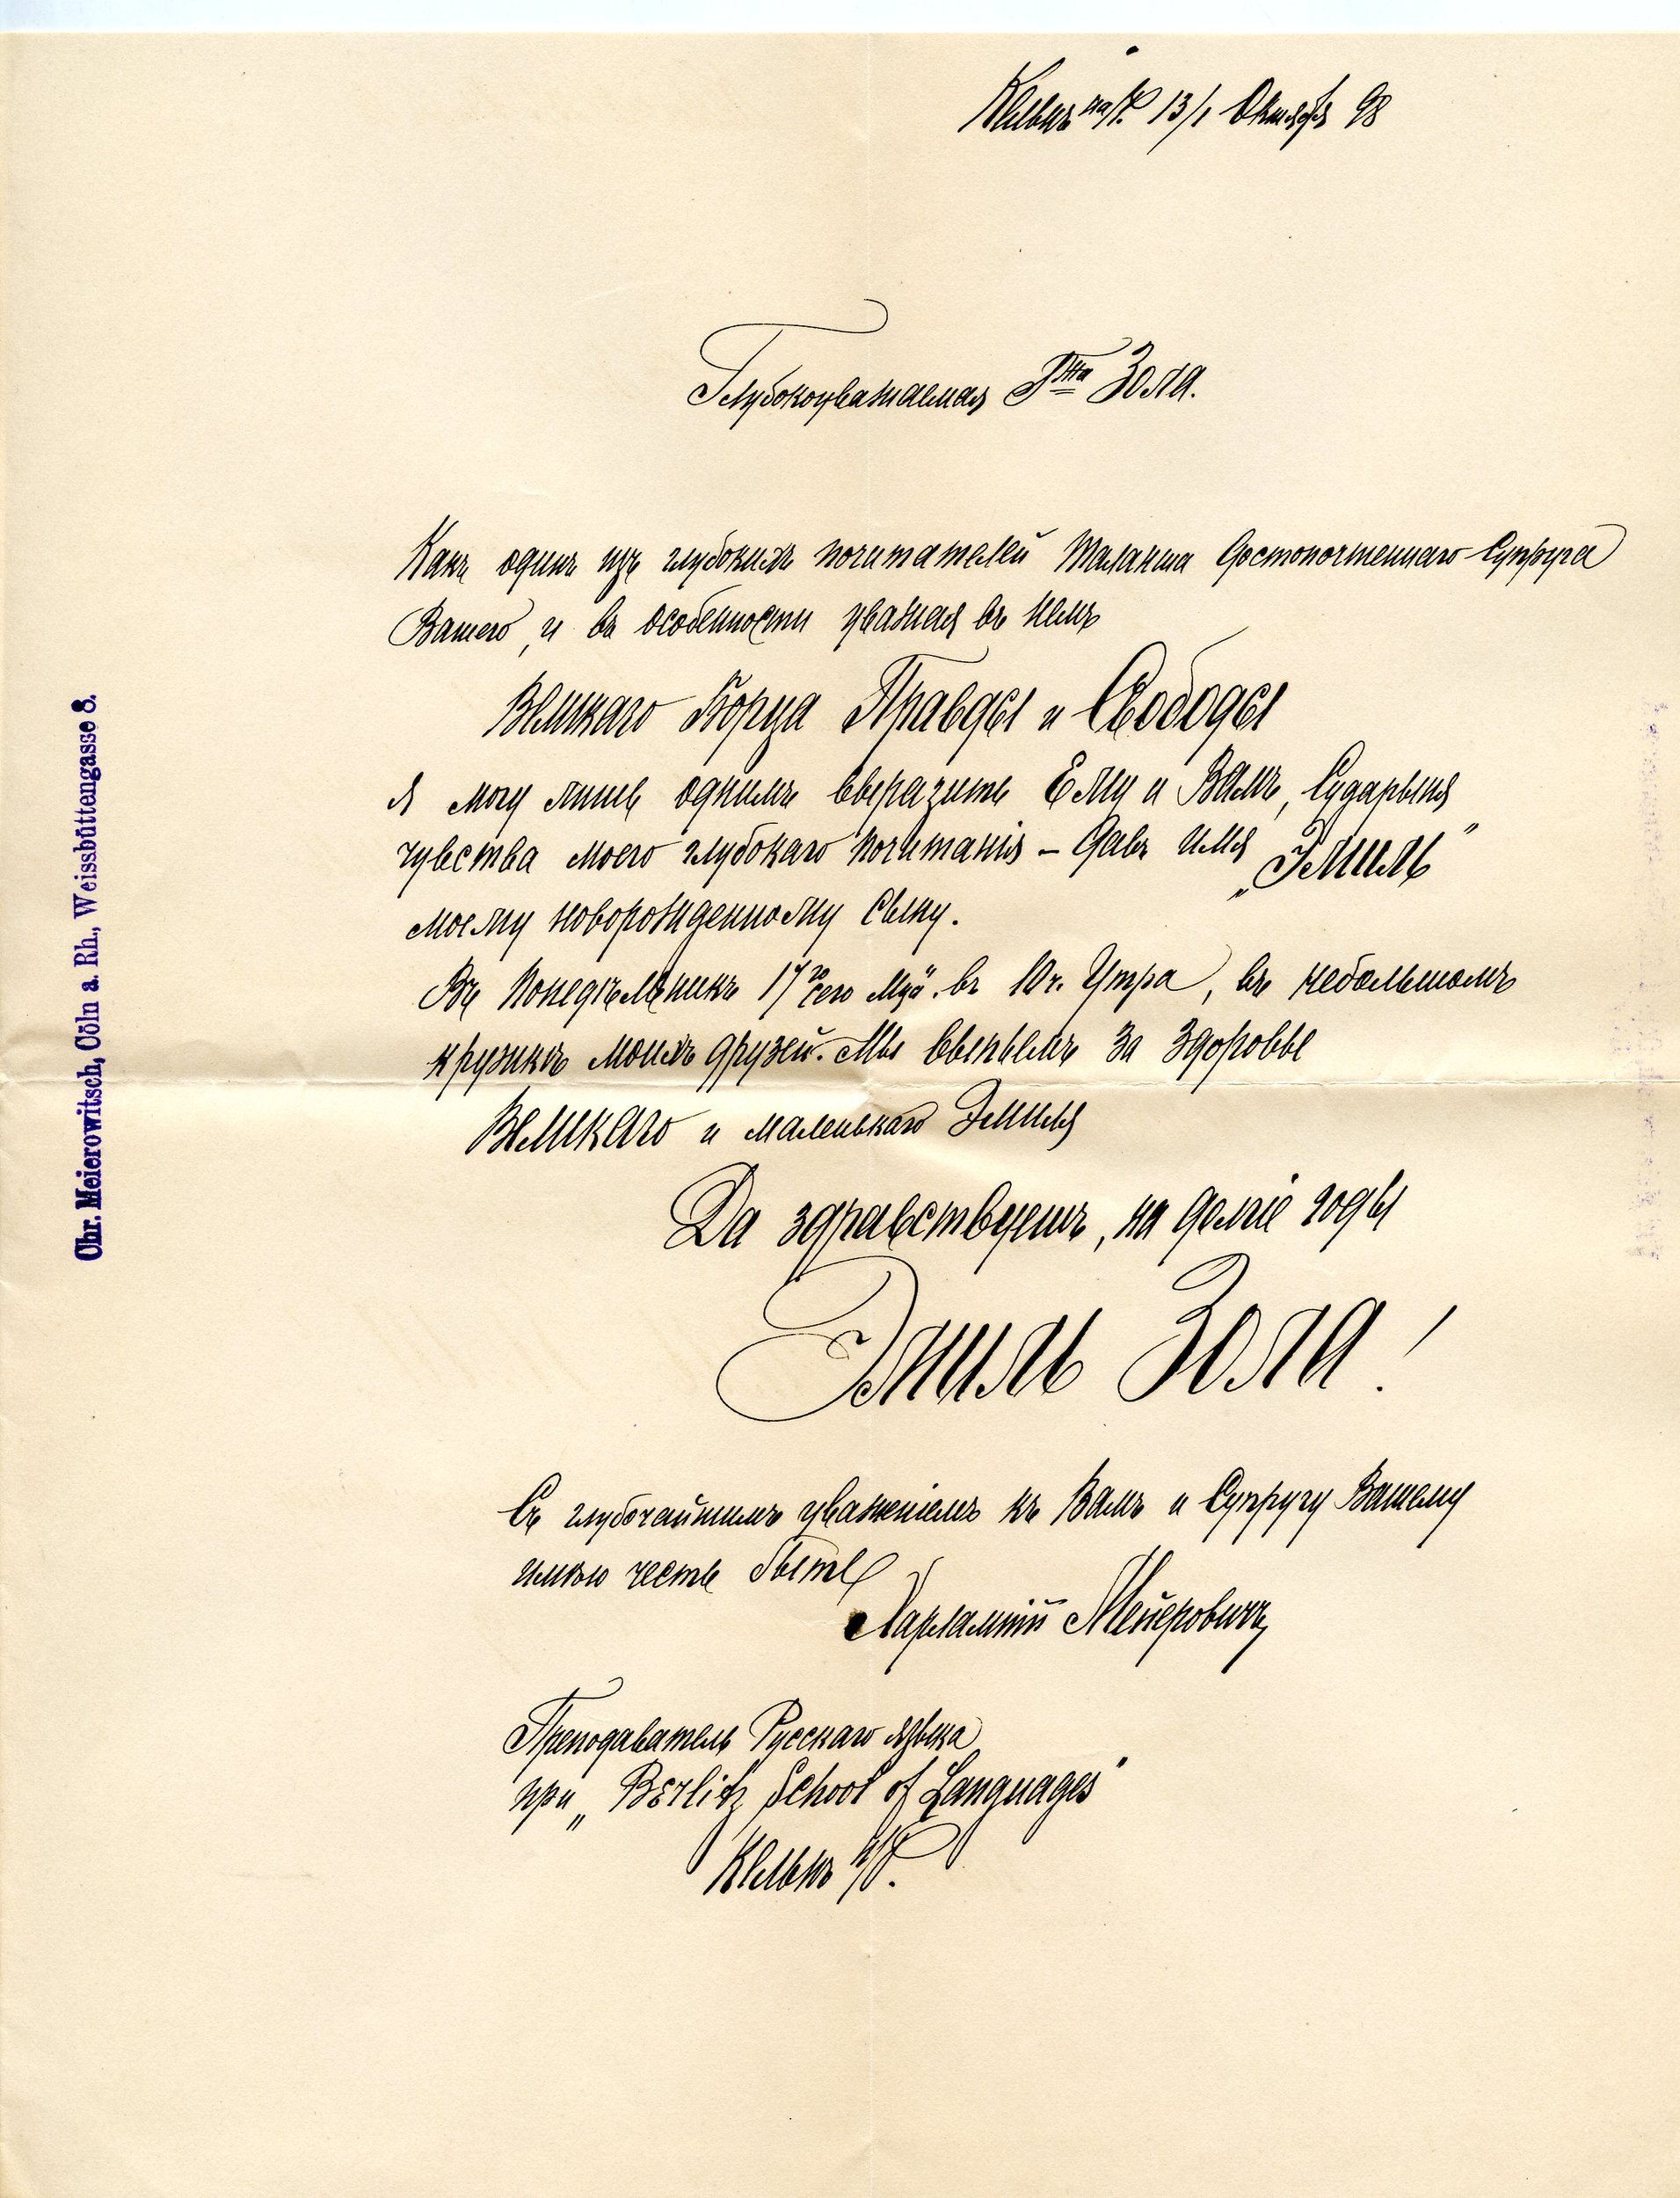 Кельнъ на/Р. 13/1 Октября 98
Глубокоуважаемая Гжа Зола.
Какъ одинъ изъ глубокихъ почитателей таланта Достопочтеннаго Супруга
Вашего, и въ особенности уважая въ немъ
Великаго Борца Правды и Свободы
я могу лишь однимъ выразить Ему и Вамъ, Сударыня
чувства моего глубокаго почитанія – давъ имя „Эмиль“
моему новорожденному сыну.
Въ Понедѣльникъ 17го сего Мца. въ 10 ч. Утра, въ небольшомъ
кружкѣ моихъ друзей. Мы выпьемъ за здоровье
Великаго и маленькаго Эмиля
Да здравствуетъ, на долгіе годы
Эмиль Зола!
Съ глубочайшимъ уваженіемъ къ Вамъ и Супругу Вашему
имѣю честь быть
Харлампій Мейеровичъ
Преподаватель Русскаго языка
при „Berlitz School of Languages“
Кельнъ н/Р.
Chr. Meierowitsch, Cöln a. Rh., Weissbüttengasse 8.